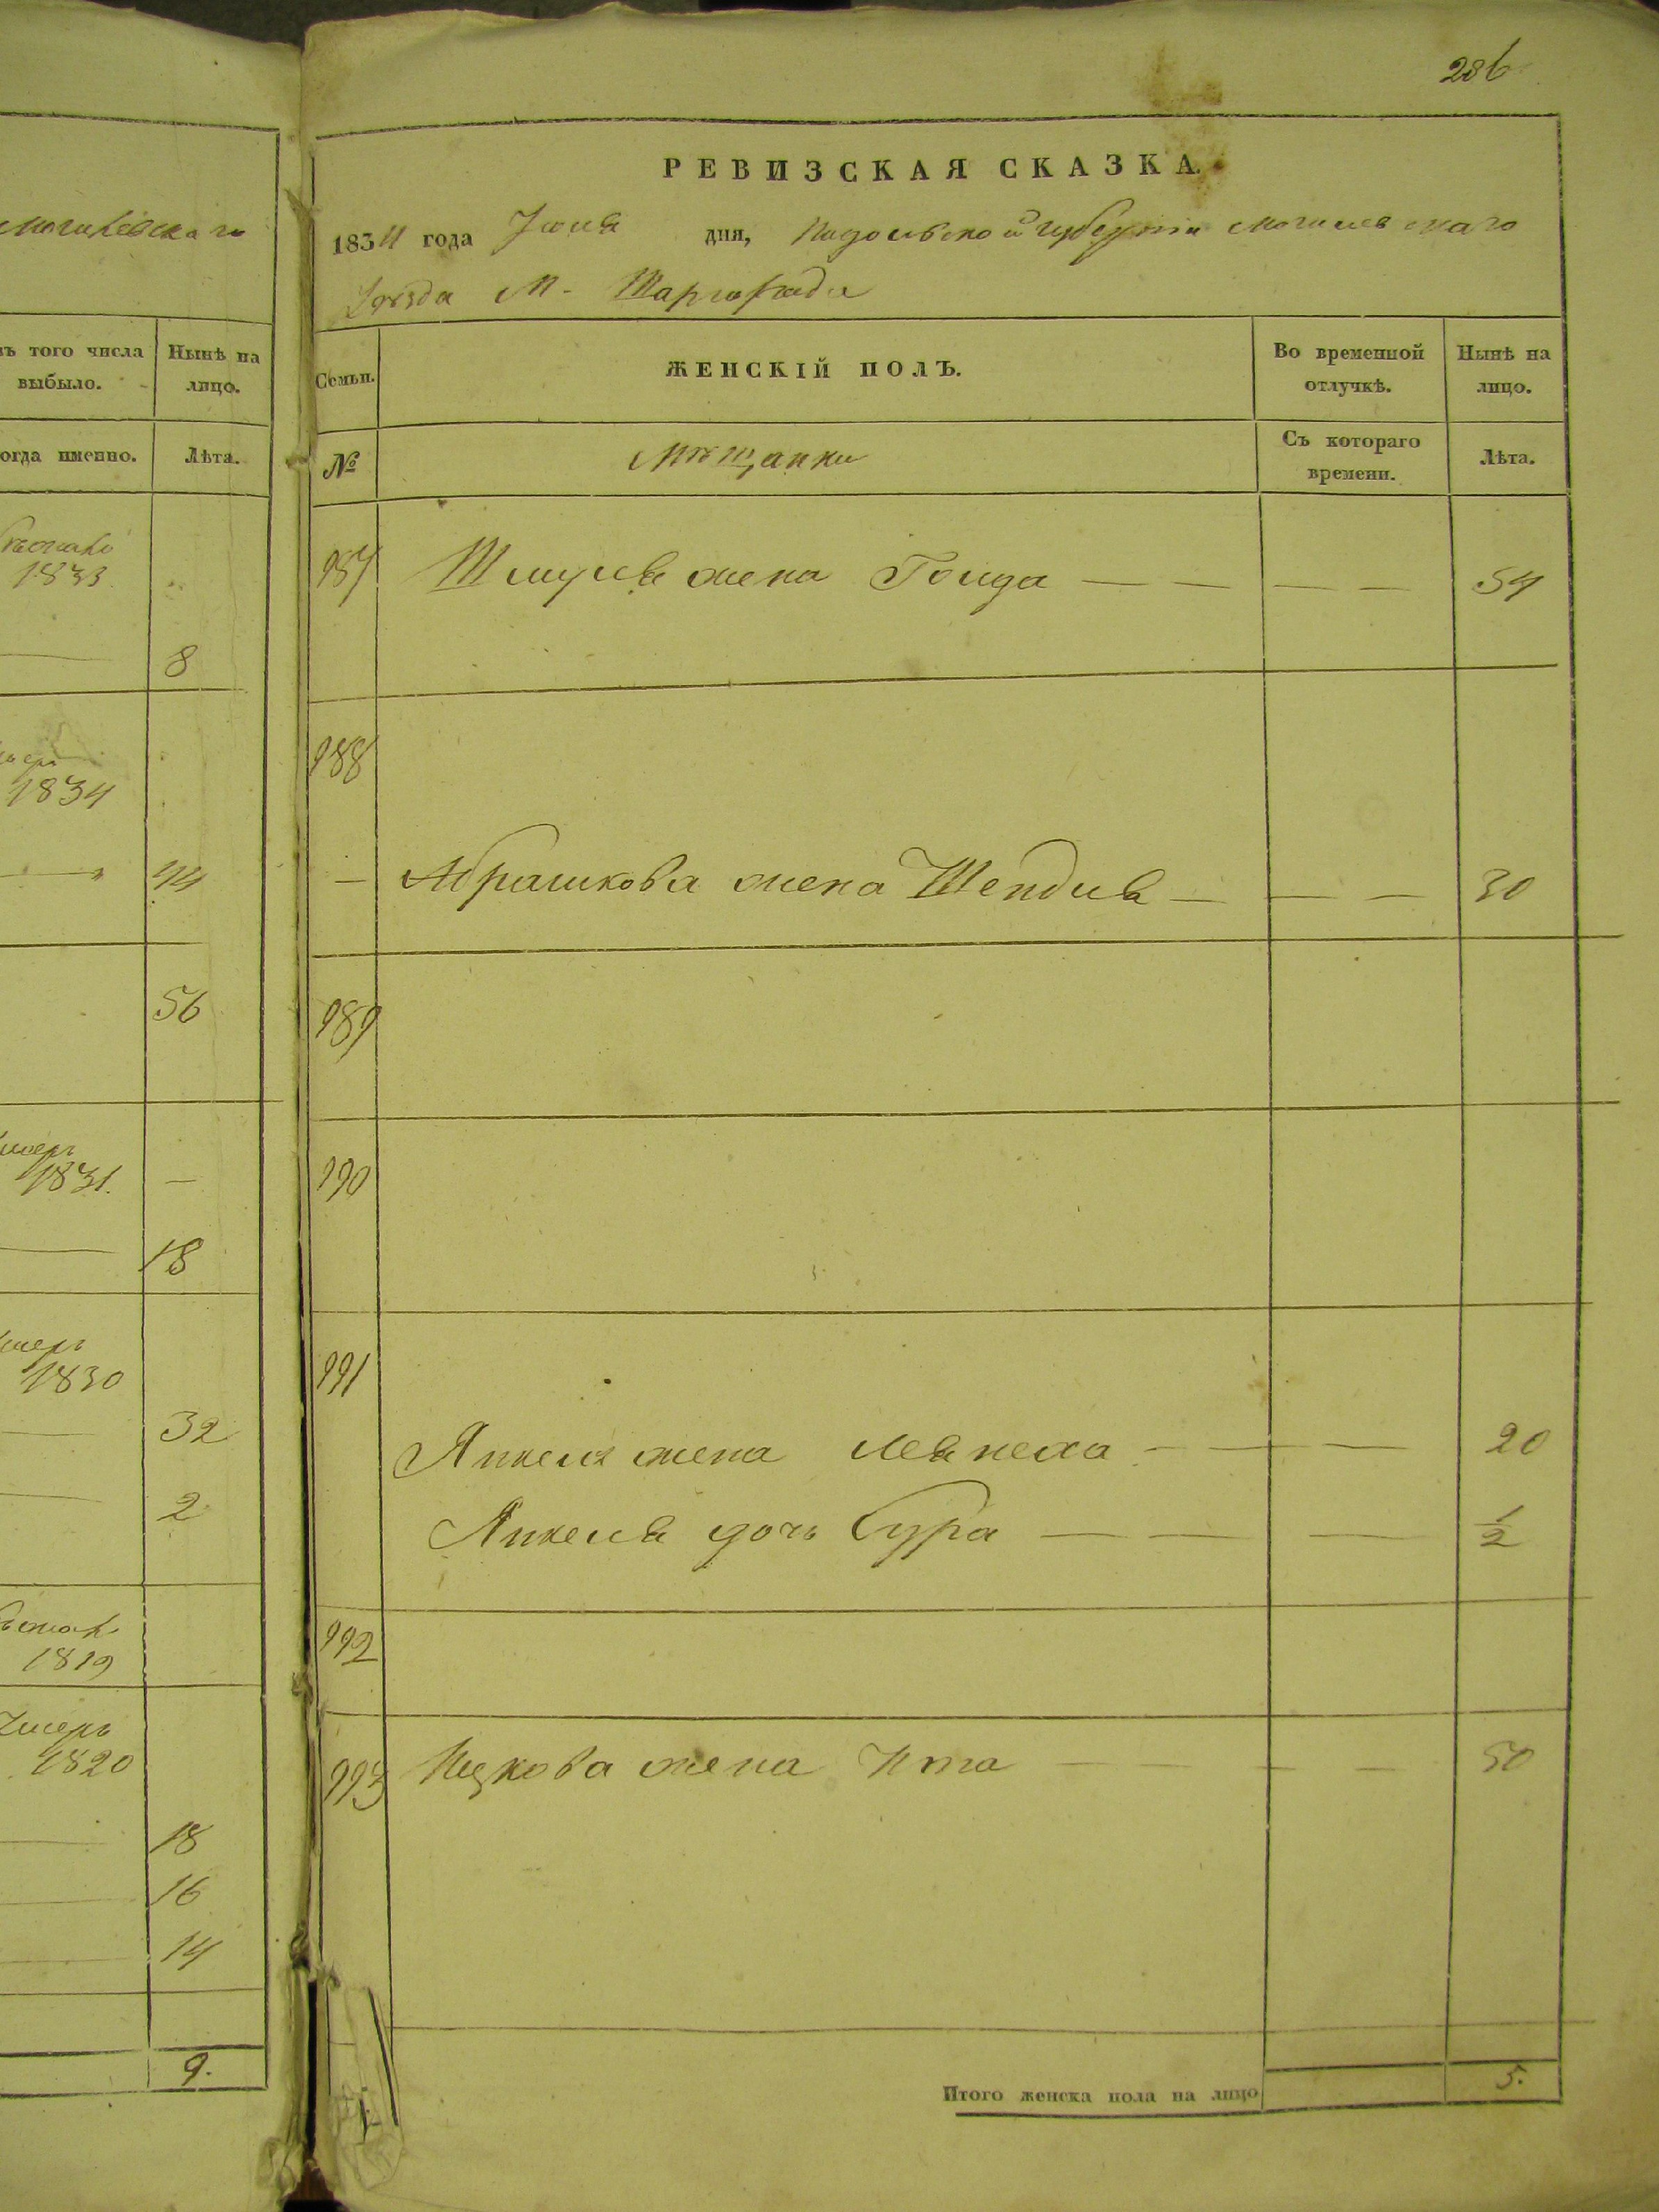 могилевскаго
того числа
выбыло.
Нынѣ на
лицо.
именно.
Лѣта.
1833
8
1834
44
56
умеръ
1831.
—
18
умеръ
1830
32
2
1819
Умеръ
1820
18
16
14
9.
286
РЕВИЗСКАЯ СКАЗКА.
1834 года Июня дня, Подольской губерніи Могилевскаго
Уѣзда М. Шаргорода
Семьи.
ЖЕНСКІЙ ПОЛЪ.
Во временной
отлучкѣ.
Нынѣ на
лицо.
№
Мѣщанки
Съ котораго
времени.
Лѣта.
987 Шмуля жена Голда — — — — 54
988
— Абрашкова жена Шендля — — — 30
989
990
991
Янкеля жена — — — 20
Янкеля дочь Сура — — — 1/2
992
993 Ицкова жена Ита — — — — 50
Итого женска пола на лицо 5.